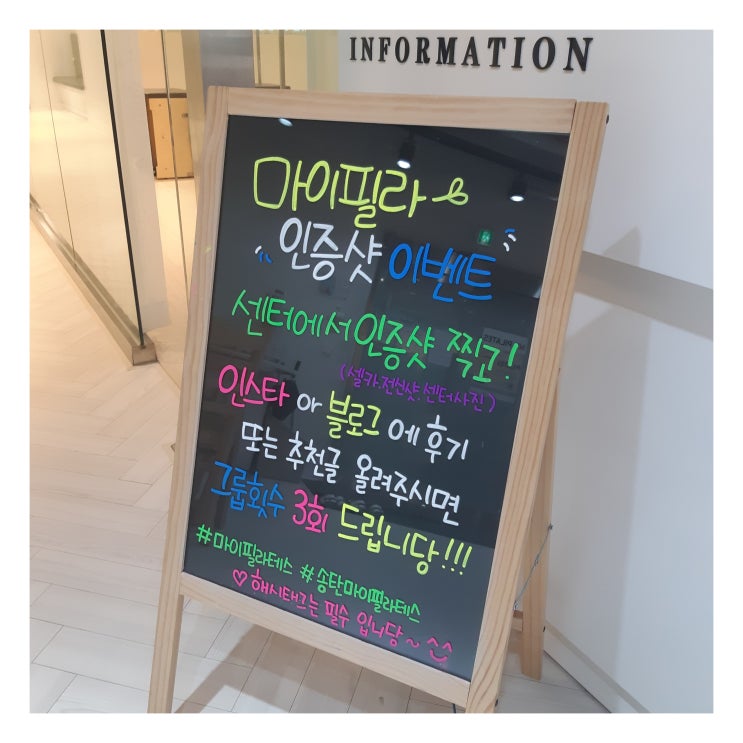 INFORMATION
마이필라
인증샷 이벤트
센터에서 인증샷 찍고!
(셀카.전신샷.센터사진)
인스타 or 블로그에 후기
또는 추천글 올려주시면
그룹횟수 3회 드립니당!!!
#마이필라테스 #송탄마이필라테스
♡해시태그는 필수 입니당~^^